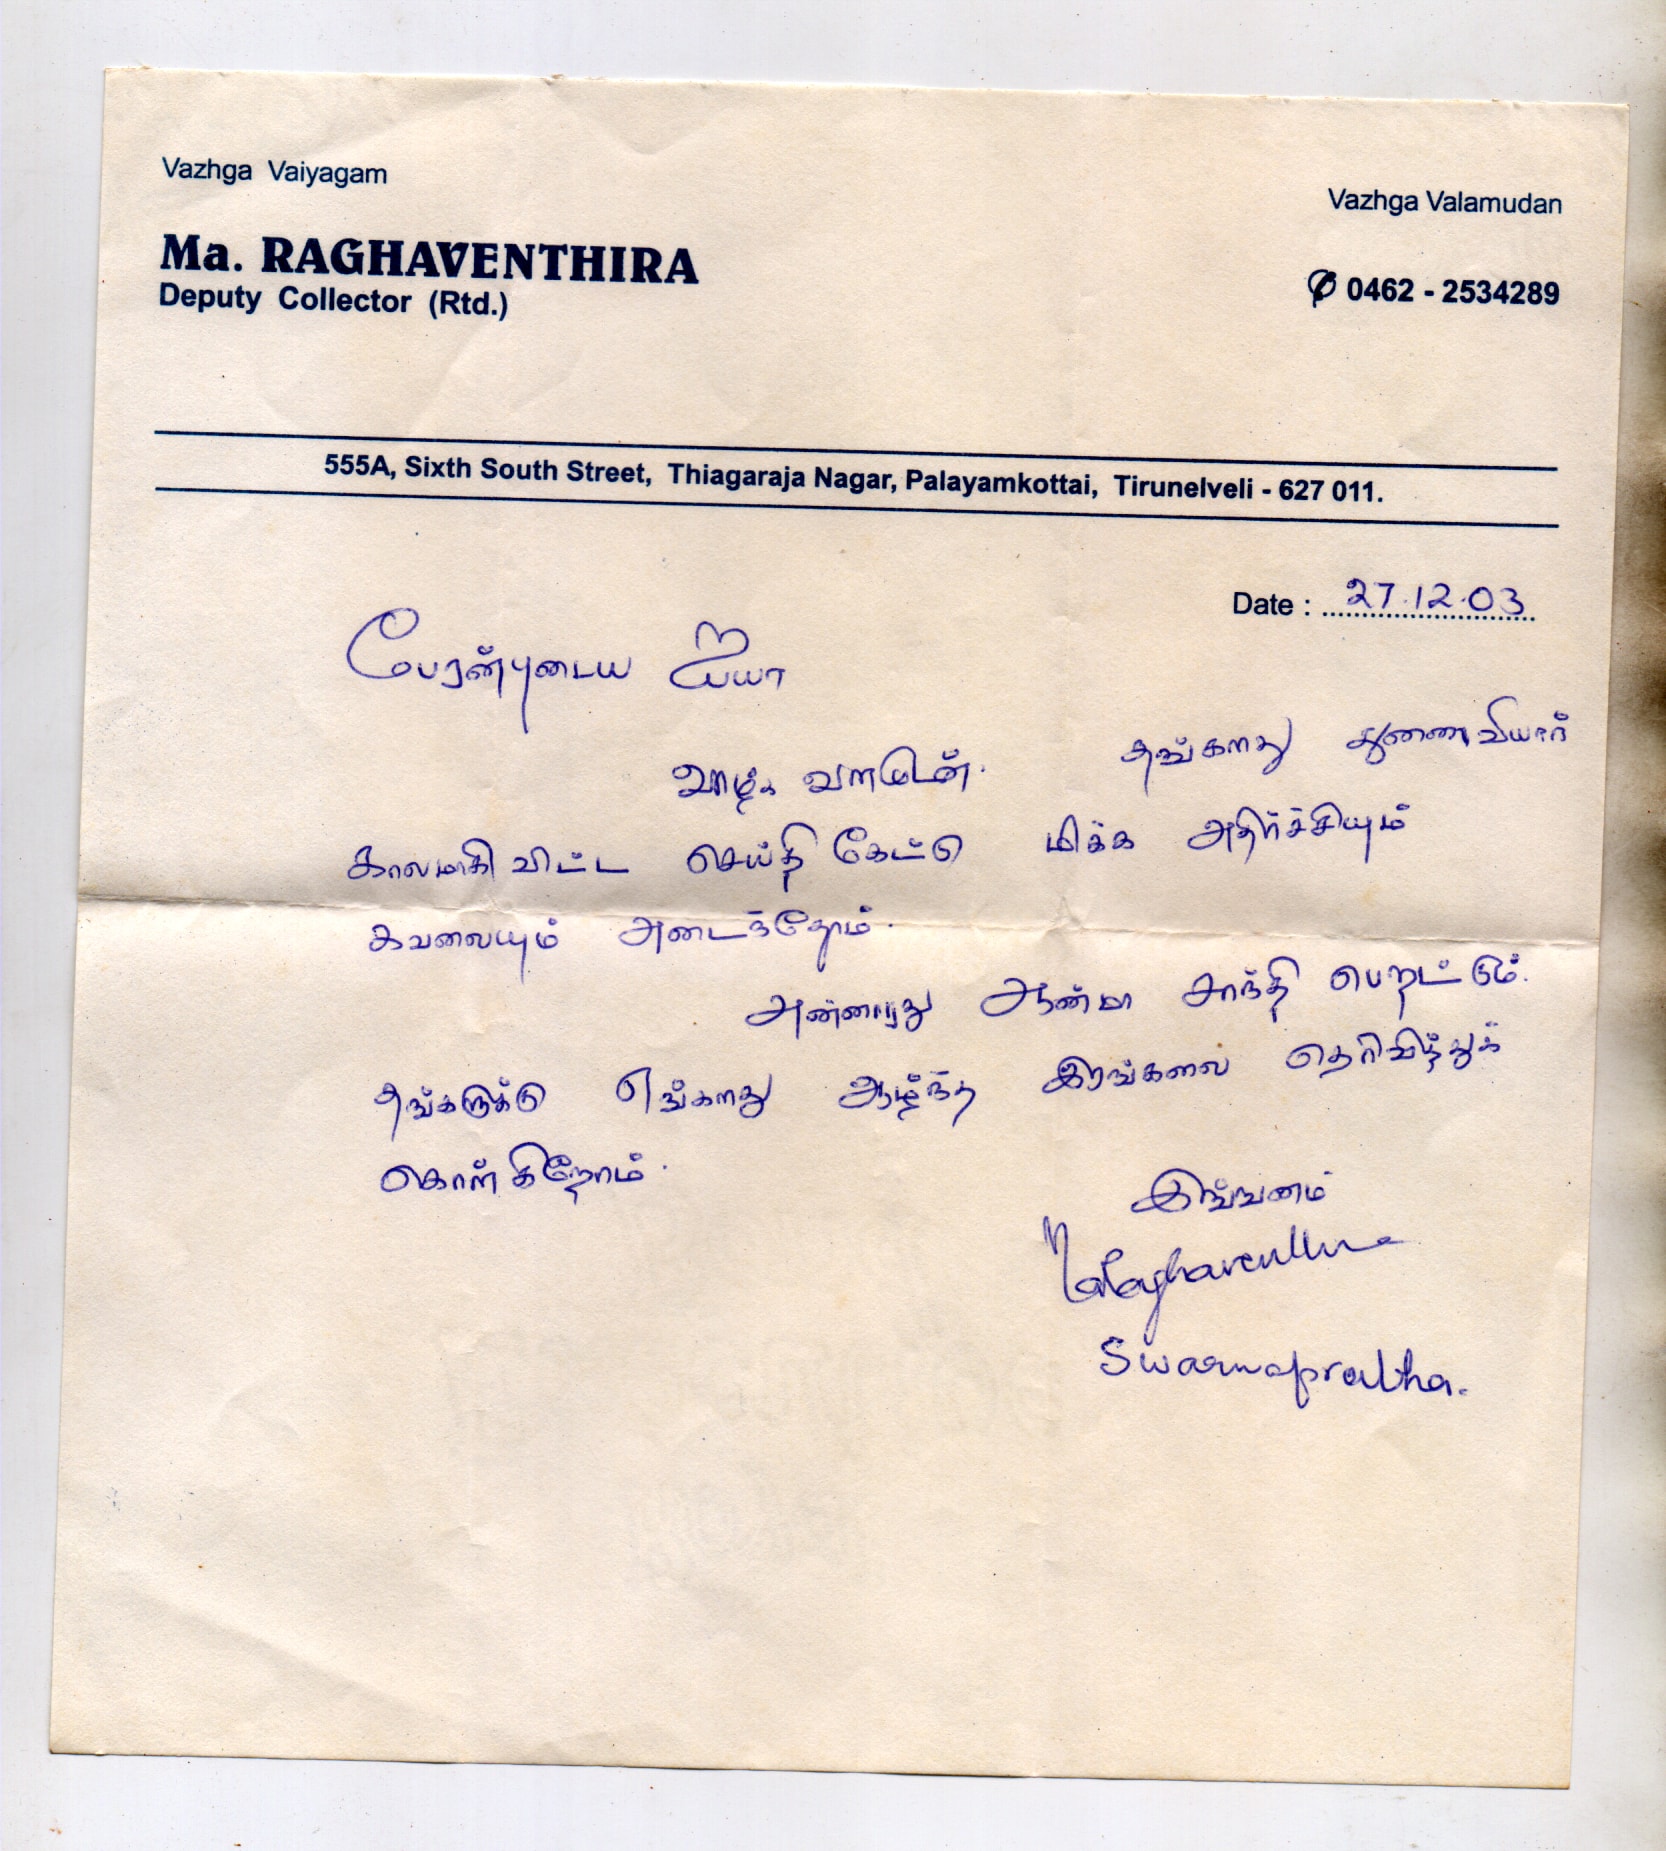 Vazhga Vaiyagam
Vazhga Valamudan
Ma. RAGHAVENTHIRA
Deputy Collector (Rtd.)
0462 - 2534289
555A, Sixth South Street, Thiagaraja Nagar, Palayamkottai, Tirunelveli - 627 011.
Date : 27.12.03
பேரன்புடைய ஐயா
வாழ்க வளமுடன். தங்களது துணைவியார்
காலமாகி விட்ட செய்தி கேட்டு மிக்க அதிர்ச்சியும்
கவலையும் அடைந்தோம்.
அன்னாரது ஆன்மா சாந்தி பெறட்டும்.
தங்களுக்கு எங்களது ஆழ்ந்த இரங்கலை தெரிவித்துக்
கொள்கிறோம்.
இங்ஙனம்
MaRaghaventhira
Swarnaprabha.